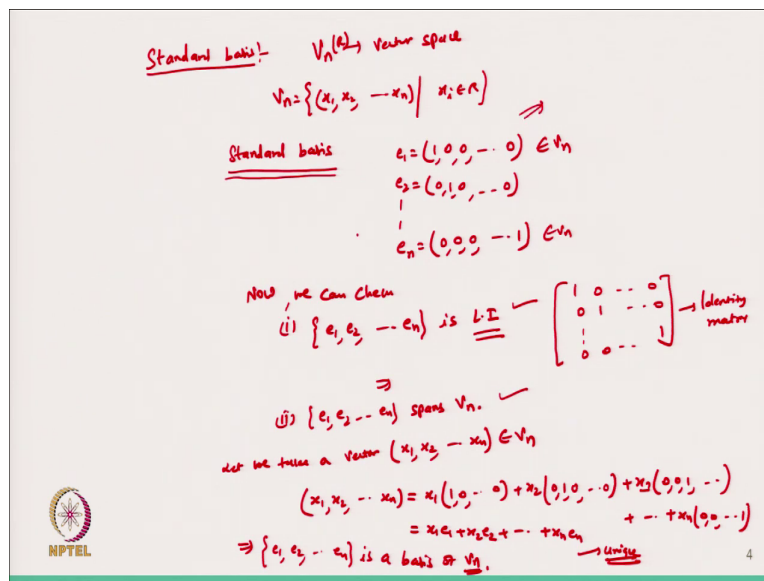 Standard basis:- Vn(R) → vector space
Vn = {(x1, x2, --- xn) | xi ∈ R}
Standard basis e1 = (1,0,0, --- 0) ∈ Vn
e2 = (0,1,0, --- 0)
en = (0,0,0, --- 1) ∈ Vn
Now, we can check
(i) {e1, e2, --- en} is L.I ✓ [1 0 -- 0 → Identity
0 1 -- 0 matrix
⋮
0 0 -- 1]
⇒
(ii) {e1, e2 --- en} spans Vn. ✓
Let we take a vector (x1, x2, --- xn) ∈ Vn
(x1, x2, -- xn) = x1(1,0,-- 0) + x2(0,1,0,--0) + x3(0,0,1, --)
+ -- + xn(0,0,--1)
= x1e1 + x2e2 + -- + xnen
⇒ {e1, e2, -- en} is a basis of Vn. → unique
NPTEL
4